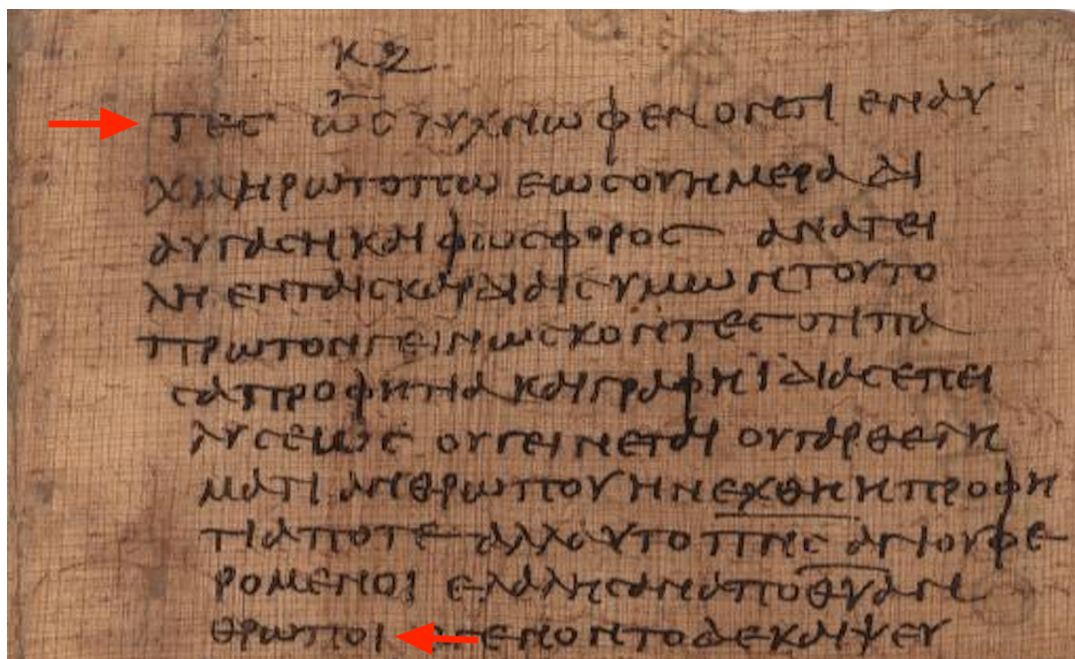 ΚΖ
ΤΕϹ ὩϹ ΛΥΧΝΩ ΦΕΝΟΝΤΙ ΕΝ ΑΥ
ΧΜΗΡΩ ΤΟΠΩ ΕΩϹ ΟΥ ΗΜΕΡΑ ΔΙ
ΑΥΓΑϹΗ ΚΑΙ ΦΩϹΦΟΡΟϹ ΑΝΑΤΕΙ
ΛΗ ΕΝ ΤΑΙϹ ΚΑΡΔΙΑΙϹ ΥΜΩΝ ΤΟΥΤΟ
ΠΡΩΤΟΝ ΓΕΙΝΩϹΚΟΝΤΕϹ ΟΤΙ ΠΑ
ϹΑ ΠΡΟΦΗΤΙΑ ΚΑΙ ΓΡΑΦΗ ΙΔΙΑϹ ΕΠΕΙ
ΛΥϹΕΩϹ ΟΥ ΓΕΙΝΕΤΑΙ ΟΥ ΓΑΡ ΘΕΛΗ
ΜΑΤΙ ΑΝΘΡΩΠΟΥ ΗΝΕΧΘΗ Η ΠΡΟΦΗ
ΤΙΑ ΠΟΤΕ ΑΛΛΑ ΥΠΟ Π̅Ν̅Ϲ̅ ΑΓΙΟΥ ΦΕ
ΡΟΜΕΝΟΙ ΕΛΑΛΗϹΑΝ ΑΠΟ Θ̅Υ̅ ΑΝ
ΘΡΩΠΟΙ ΕΓΕΝΟΝΤΟ ΔΕ ΚΑΙ ΨΕΥ